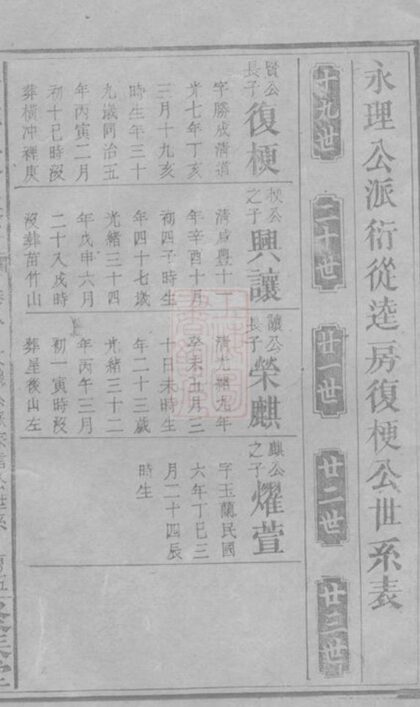 永理公派衍從逵房復梗公世系表
十九世
二十世
廿一世
廿二世
廿三世
賢公
長子
復梗
字勝成清道
光七年丁亥
三月十九亥
時生年三十
九歲同治五
年丙寅二月
初十巳時沒
葬橫冲裡庚
梗公
之子
興讓
清咸豐十一
年辛酉十月
初四子時生
年四十七歲
光緒三十四
年戊申六月
二十八戌時
沒葬苗竹山
讓公
長子
榮麒
清光緒九年
癸未五月二
十日未時生
年二十三歲
光緒三十二
年丙午三月
初一寅時沒
葬屋後山左
麒公
之子
燿萱
字玉蘭民國
六年丁巳三
月二十四辰
時生